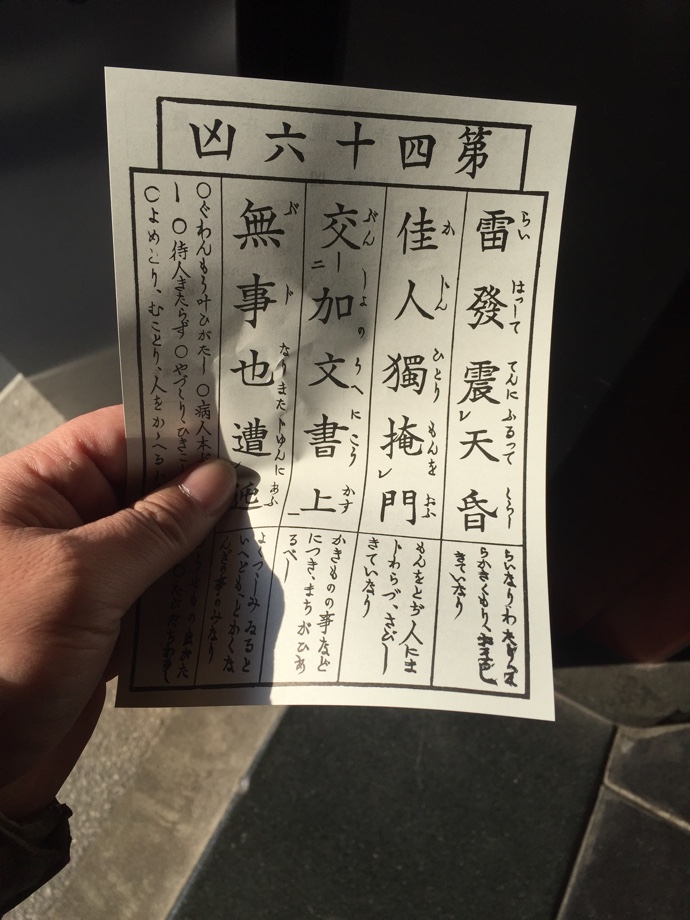 第四十六凶
雷發震天昏
らい はつして てんに ふるつて くらし
佳人獨掩門
か じん ひとり もんを おふ
交加文書上
ぶん しよの うへ に こう かす
無事也遭
ぶ じ なり また じゆんに あふ
もんをとぢ人にま
じわらづ、さびし
きていなり
かきものの事など
につき、まちがひあ
るべし
よくつゝしみゐると
いへども、とかくな
んぎの事のみなり
○ぐわんもう叶ひがたし ○病人本
○待人きたらず ○やづくり、ひきこ
○よめとり、むことり、人をかゝへる